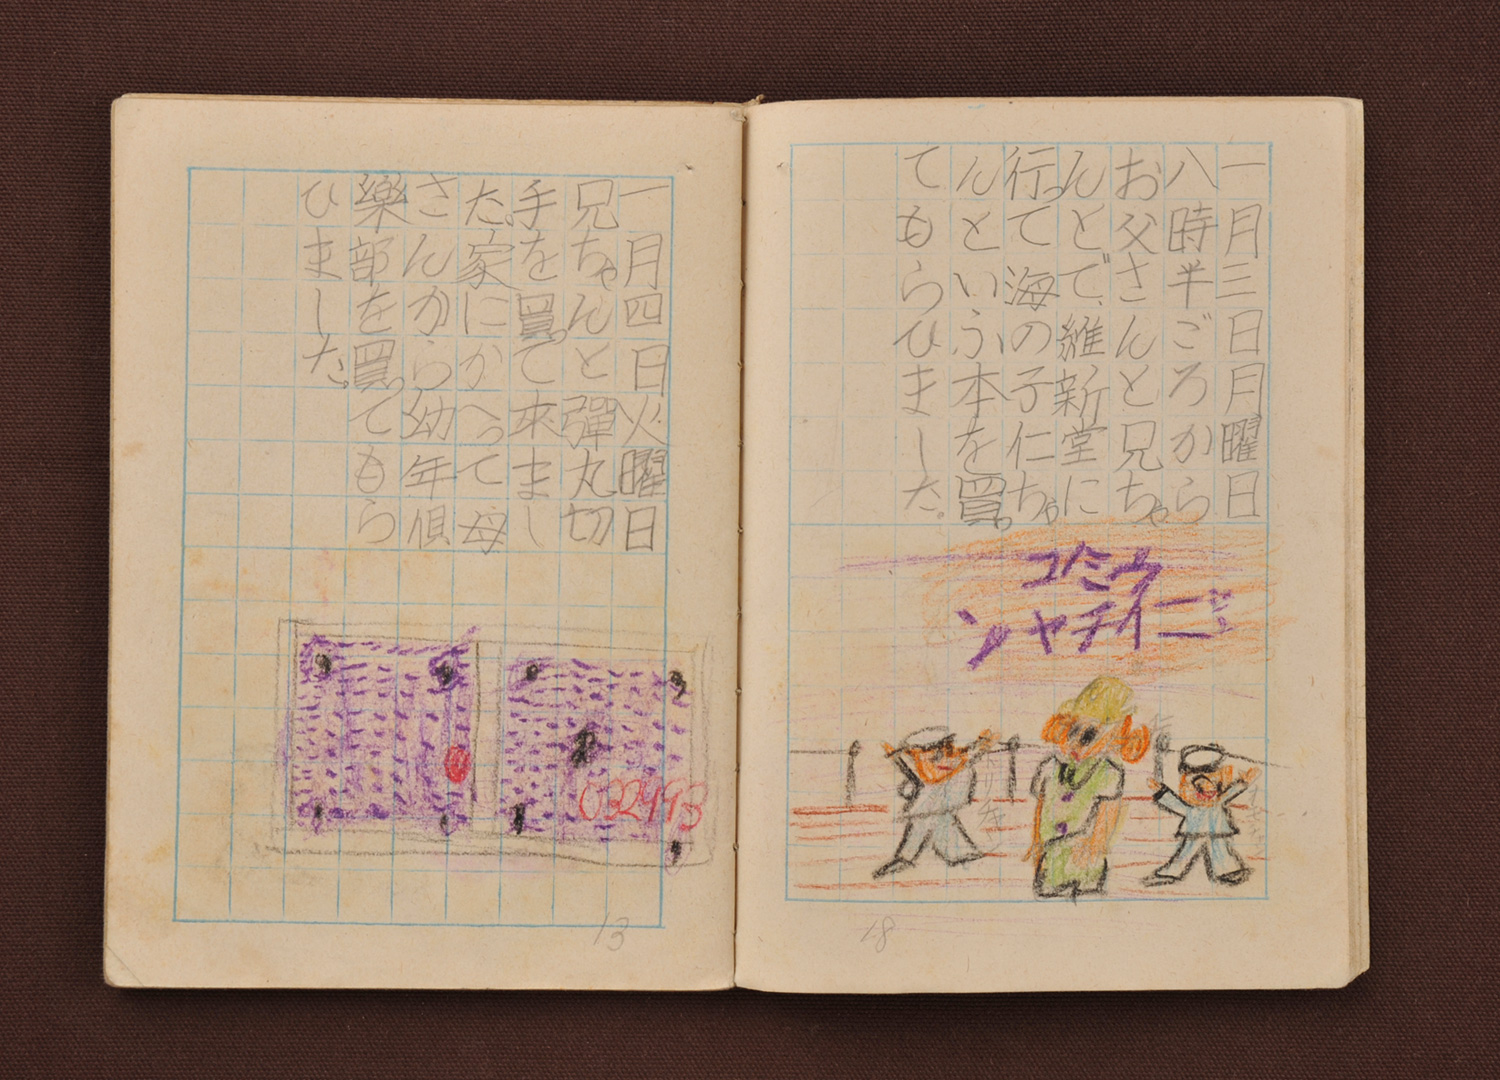 一月三日月曜日
八時半ごろから
お父さんと兄ちゃ
んとで、維新堂に
行って海の子仁ちゃ
んといふ本を買っ
てもらひました。
ウミノコ
ニイチヤン
18
一月四日火曜日
兄ちゃんと彈丸切
手を買って來まし
た。家にかへって母
さんから幼年倶
樂部を買ってもら
ひました。
13